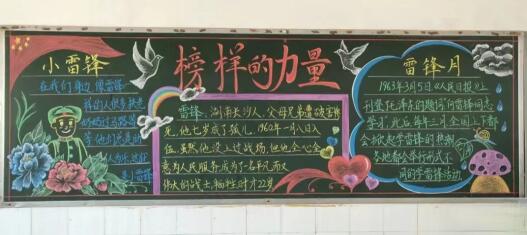 榜样的力量
小雷锋
在我们身边,像雷锋
一样的人很多,扶老
等,他们总是助
雷锋:湖南长沙人,父母兄弟遭迫害惨
死,他七岁成了孤儿,1960年一月八日入
伍,虽然他没上过战场,但他全心全
意为人民服务,成为了一名平凡而又
伟大的战士,牺牲时才22岁
雷锋月
1963年3月5日《人民日报》上
刊登《毛泽东的题词“向雷锋同志
学习”,此后每年三月全国上下都
会掀起学雷锋的热潮,
各地都会举行形式不
同的学雷锋活动。